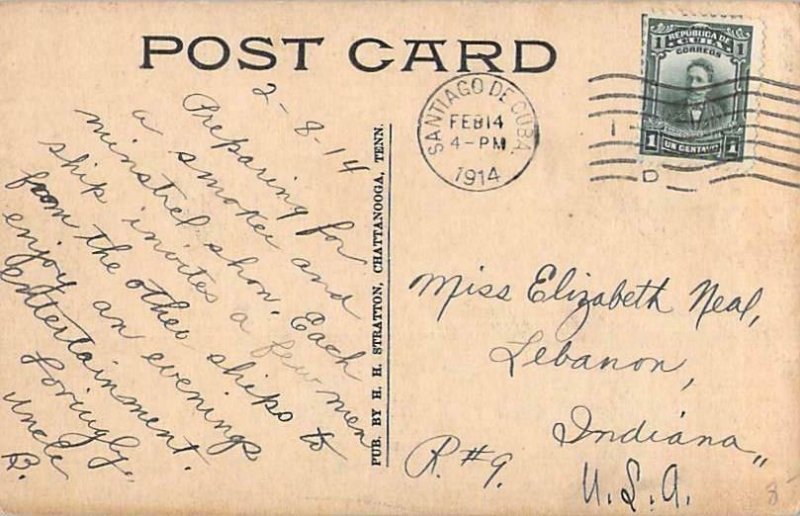 POST CARD
2-8-14
Preparing for
a smoker and
minstrel show. Each
ship invites a few men
from the other ships to
enjoy an evenings
entertainment.
Lovingly,
Uncle
B.
PUB. BY H. H. STRATTON, CHATTANOOGA, TENN.
SANTIAGO DE CUBA.
FEB 14
4-PM
1914
REPÚBLICA DE
CUBA
CORREOS
1 1
1 UN CENTAVO 1
1
D
Miss Elizabeth Neal,
Lebanon,
Indiana,,
R.#9.
U.S.A.
8